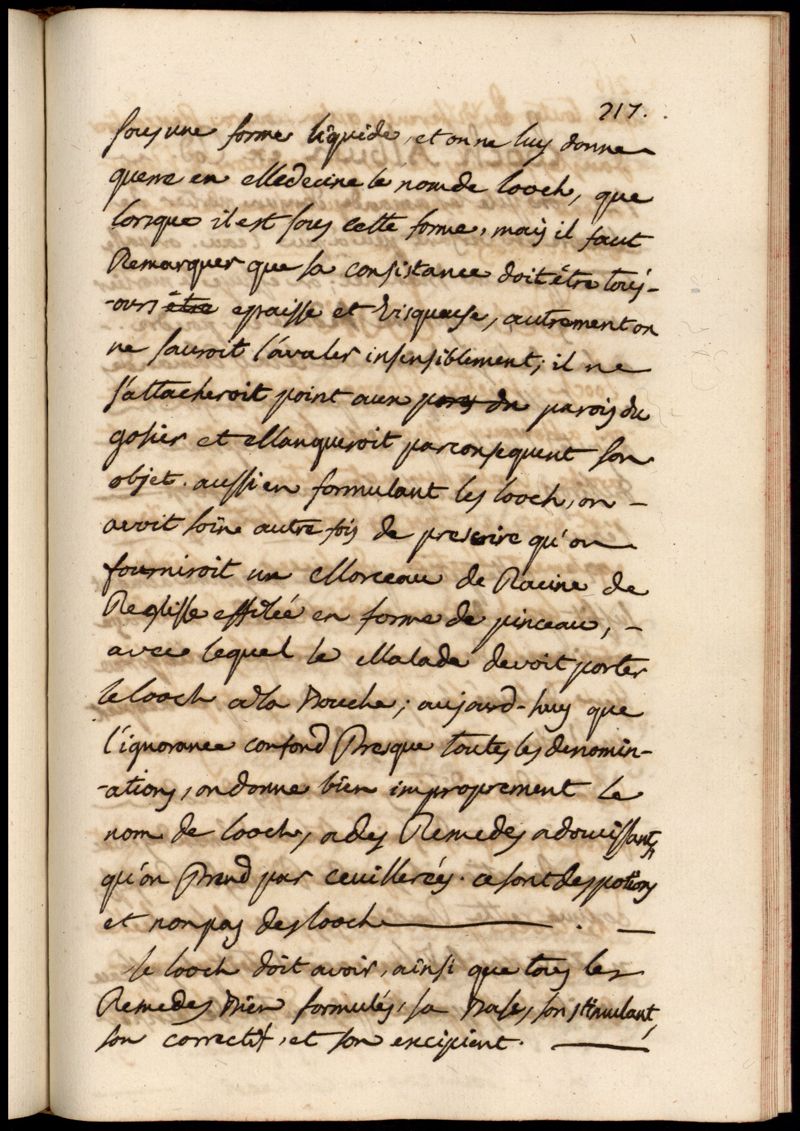 217.
sous une forme liquide, et on ne luy donne
guerre en Medecine le nom de looch, que
lorsque il est sous cette forme, mais il faut
Remarquer que sa consistance doit étre touj-
-ours être epaisse et Visqueuse, autrement on
ne sauroit l'avaler insensiblement; il ne
s'attacheroit point aux parois du
gosier et Manqueroit parconsequent son
objet. aussi en formulant les looch, on -
avoit soin autre fois de prescrire qu'on
fourniroit un Morceau de Racine de
Reglisse effilée en forme de pinceau, -
avec lequel le Malade devoit porter
le looch a la Bouche; aujourd-huy que
l'ignorance confond Presque toutes les denomin-
-ations, on donne bien improprement le
nom de looch, a des Remedes adouissants
qu'on Prend par ceuillereés. ce sont des potions
et non pas des looch .
le looch doit avoir, ainsi que tous les
Remedes Bien formulés, sa Base, son stimulant,
son correctif, et son excipient.